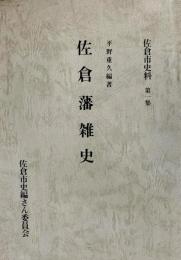 佐倉市史料 第一集
平野重久編著
佐倉藩雑史
佐倉市史編さん委員会